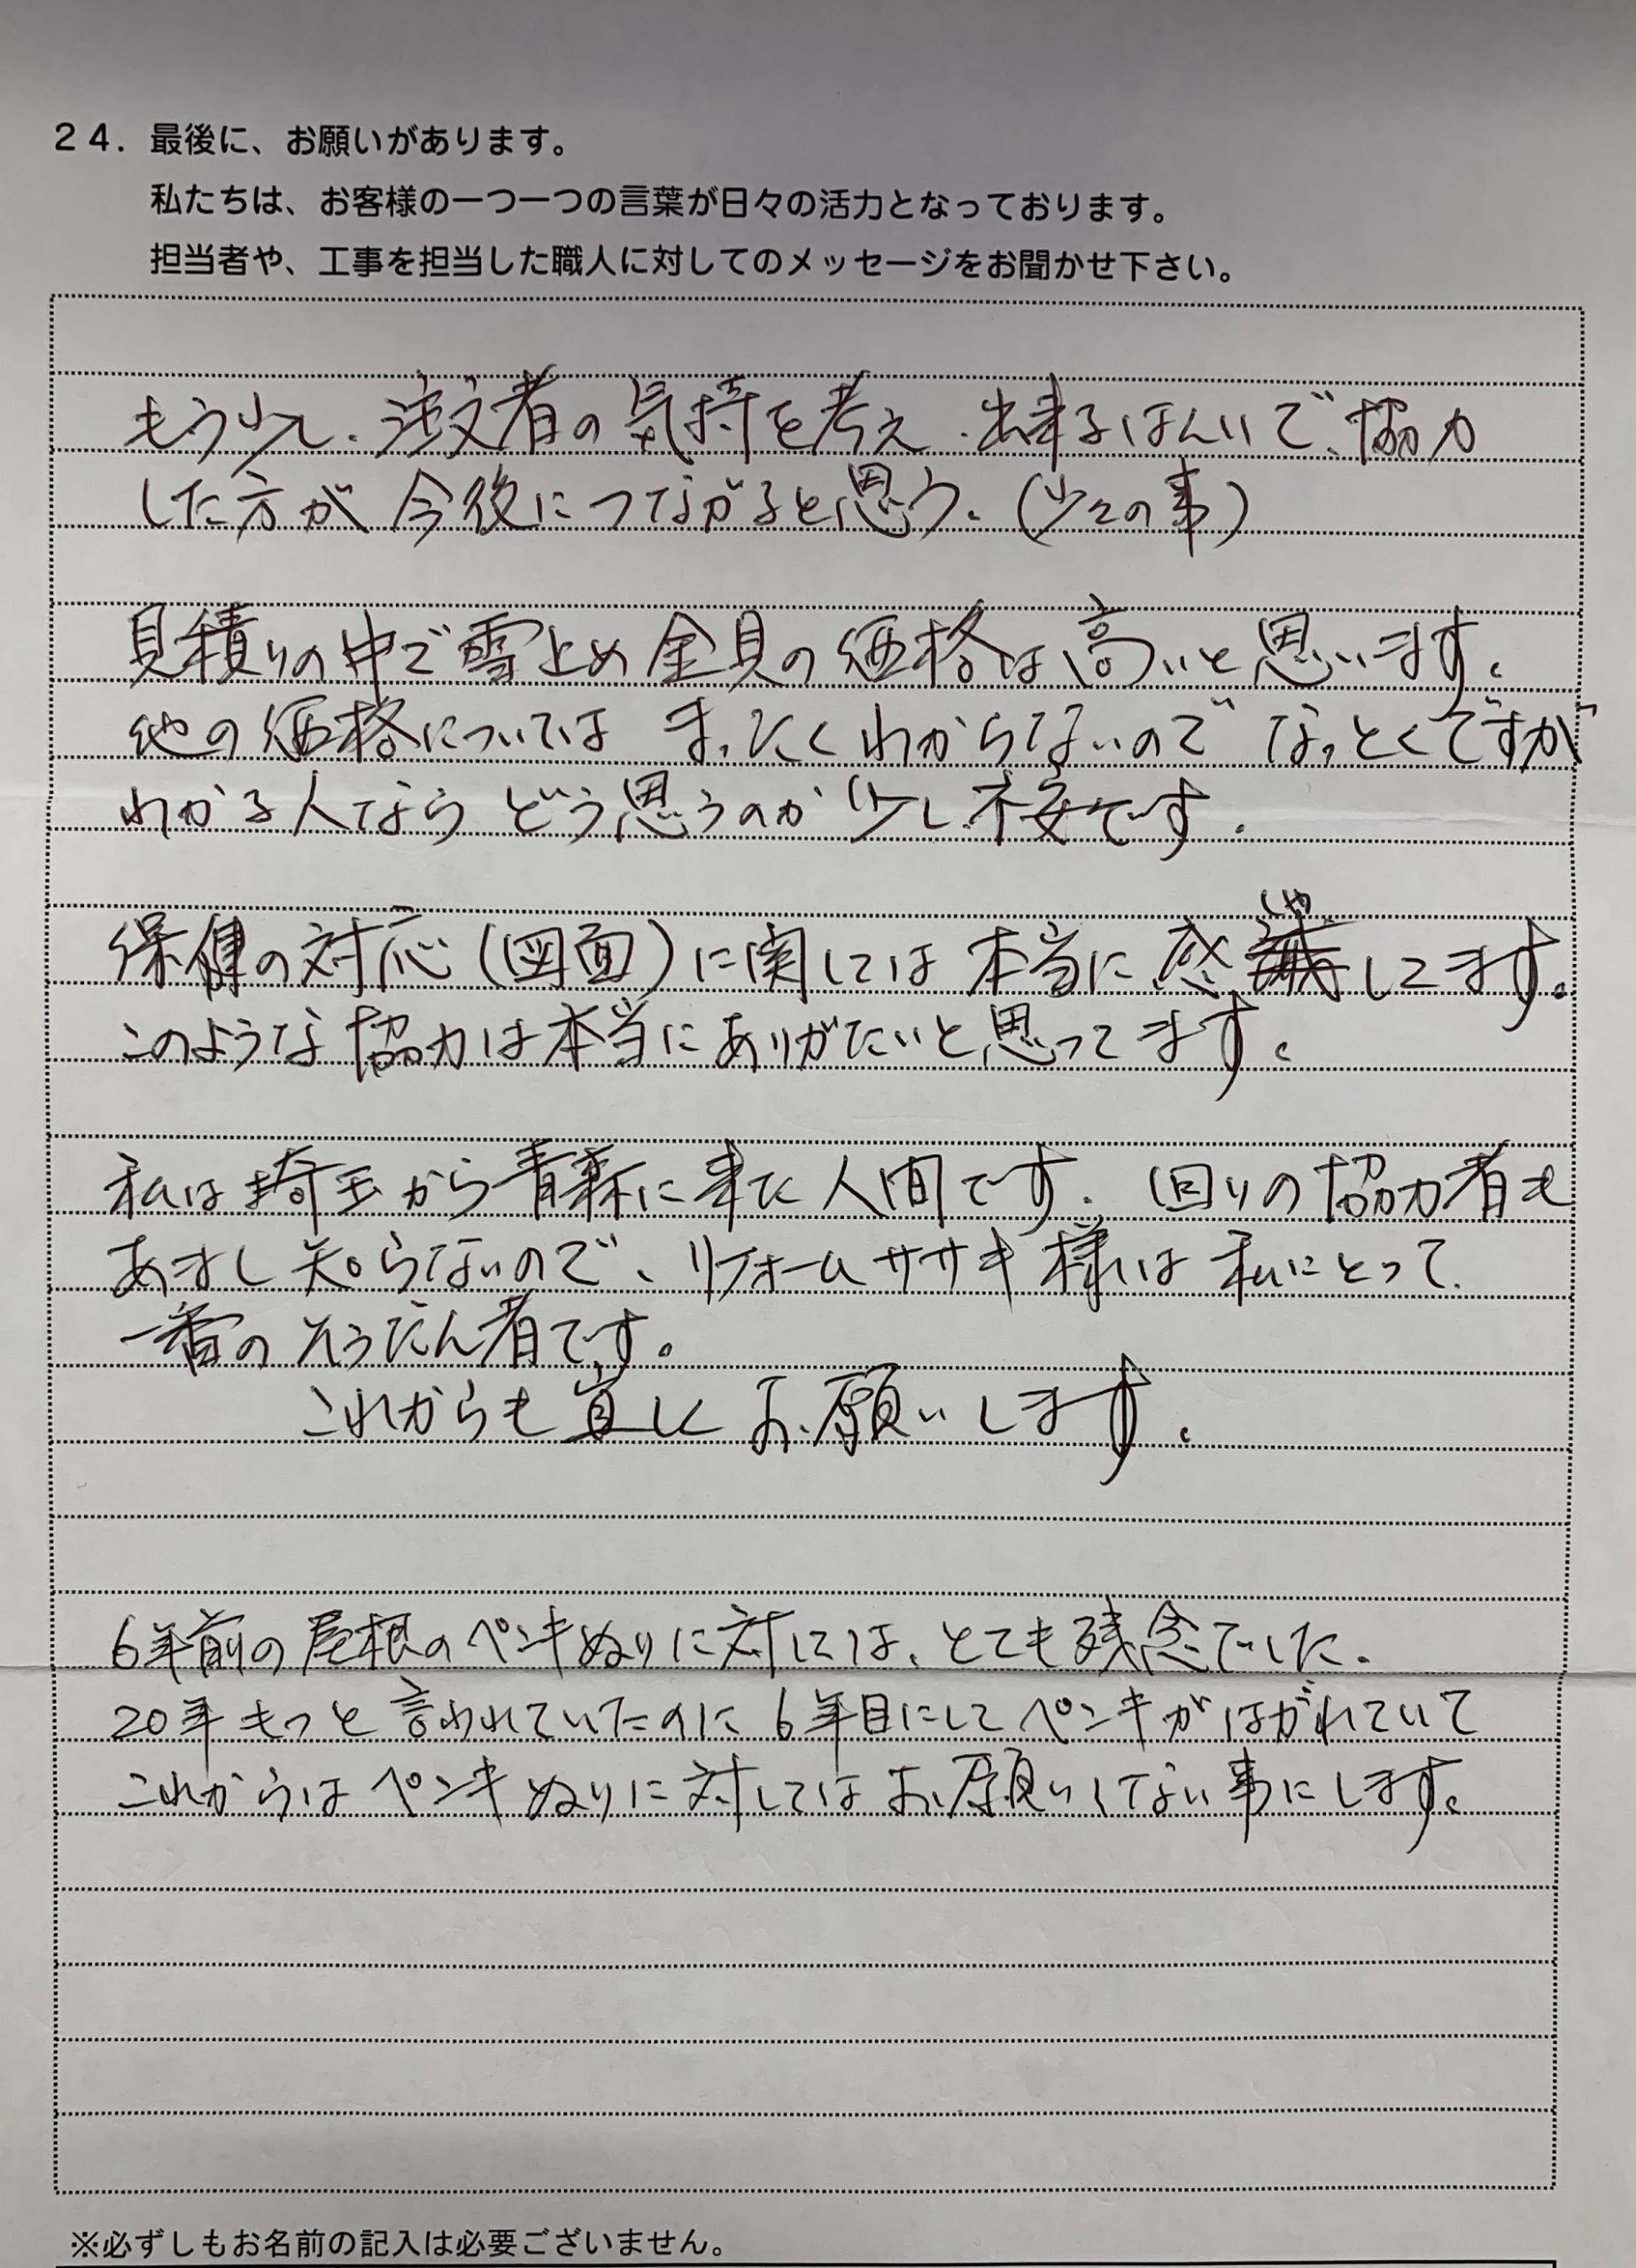 24. 最後に、お願いがあります。
私たちは、お客様の一つ一つの言葉が日々の活力となっております。
担当者や、工事を担当した職人に対してのメッセージをお聞かせ下さい。
もう少し、注文者の気持を考え、出来るはんいで、協力
した方が 今後につながると思う。(少々の事)
見積りの中で雪止め金具の価格は高いと思います。
他の価格については まったくわからないので なっとくですが
わかる人なら どう思うのか 少し不安です。
保健の対応(図面)に関しては 本当に感しゃしてます。
このような協力は本当にありがたいと思ってます。
私は埼玉から青森に来た人間です。回りの協力者も
あまし知らないので、リフォームササキ様は私にとって
一番の そうだん者です。
これからも宜しくお願いします。
6年前の屋根のペンキぬりに対しては、とても残念でした。
20年もつと言われていたのに 6年目にしてペンキがはがれていて
これからはペンキぬりに対してはお願いしない事にします。
※必ずしもお名前の記入は必要ございません。